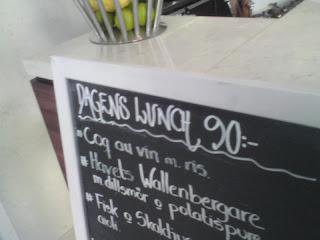 DAGENS LUNCH 90:-
* Coq au vin m. ris.
# Havets Wallenbergare
m. dillsmör o potatispure
# Fisk o Skaldjur